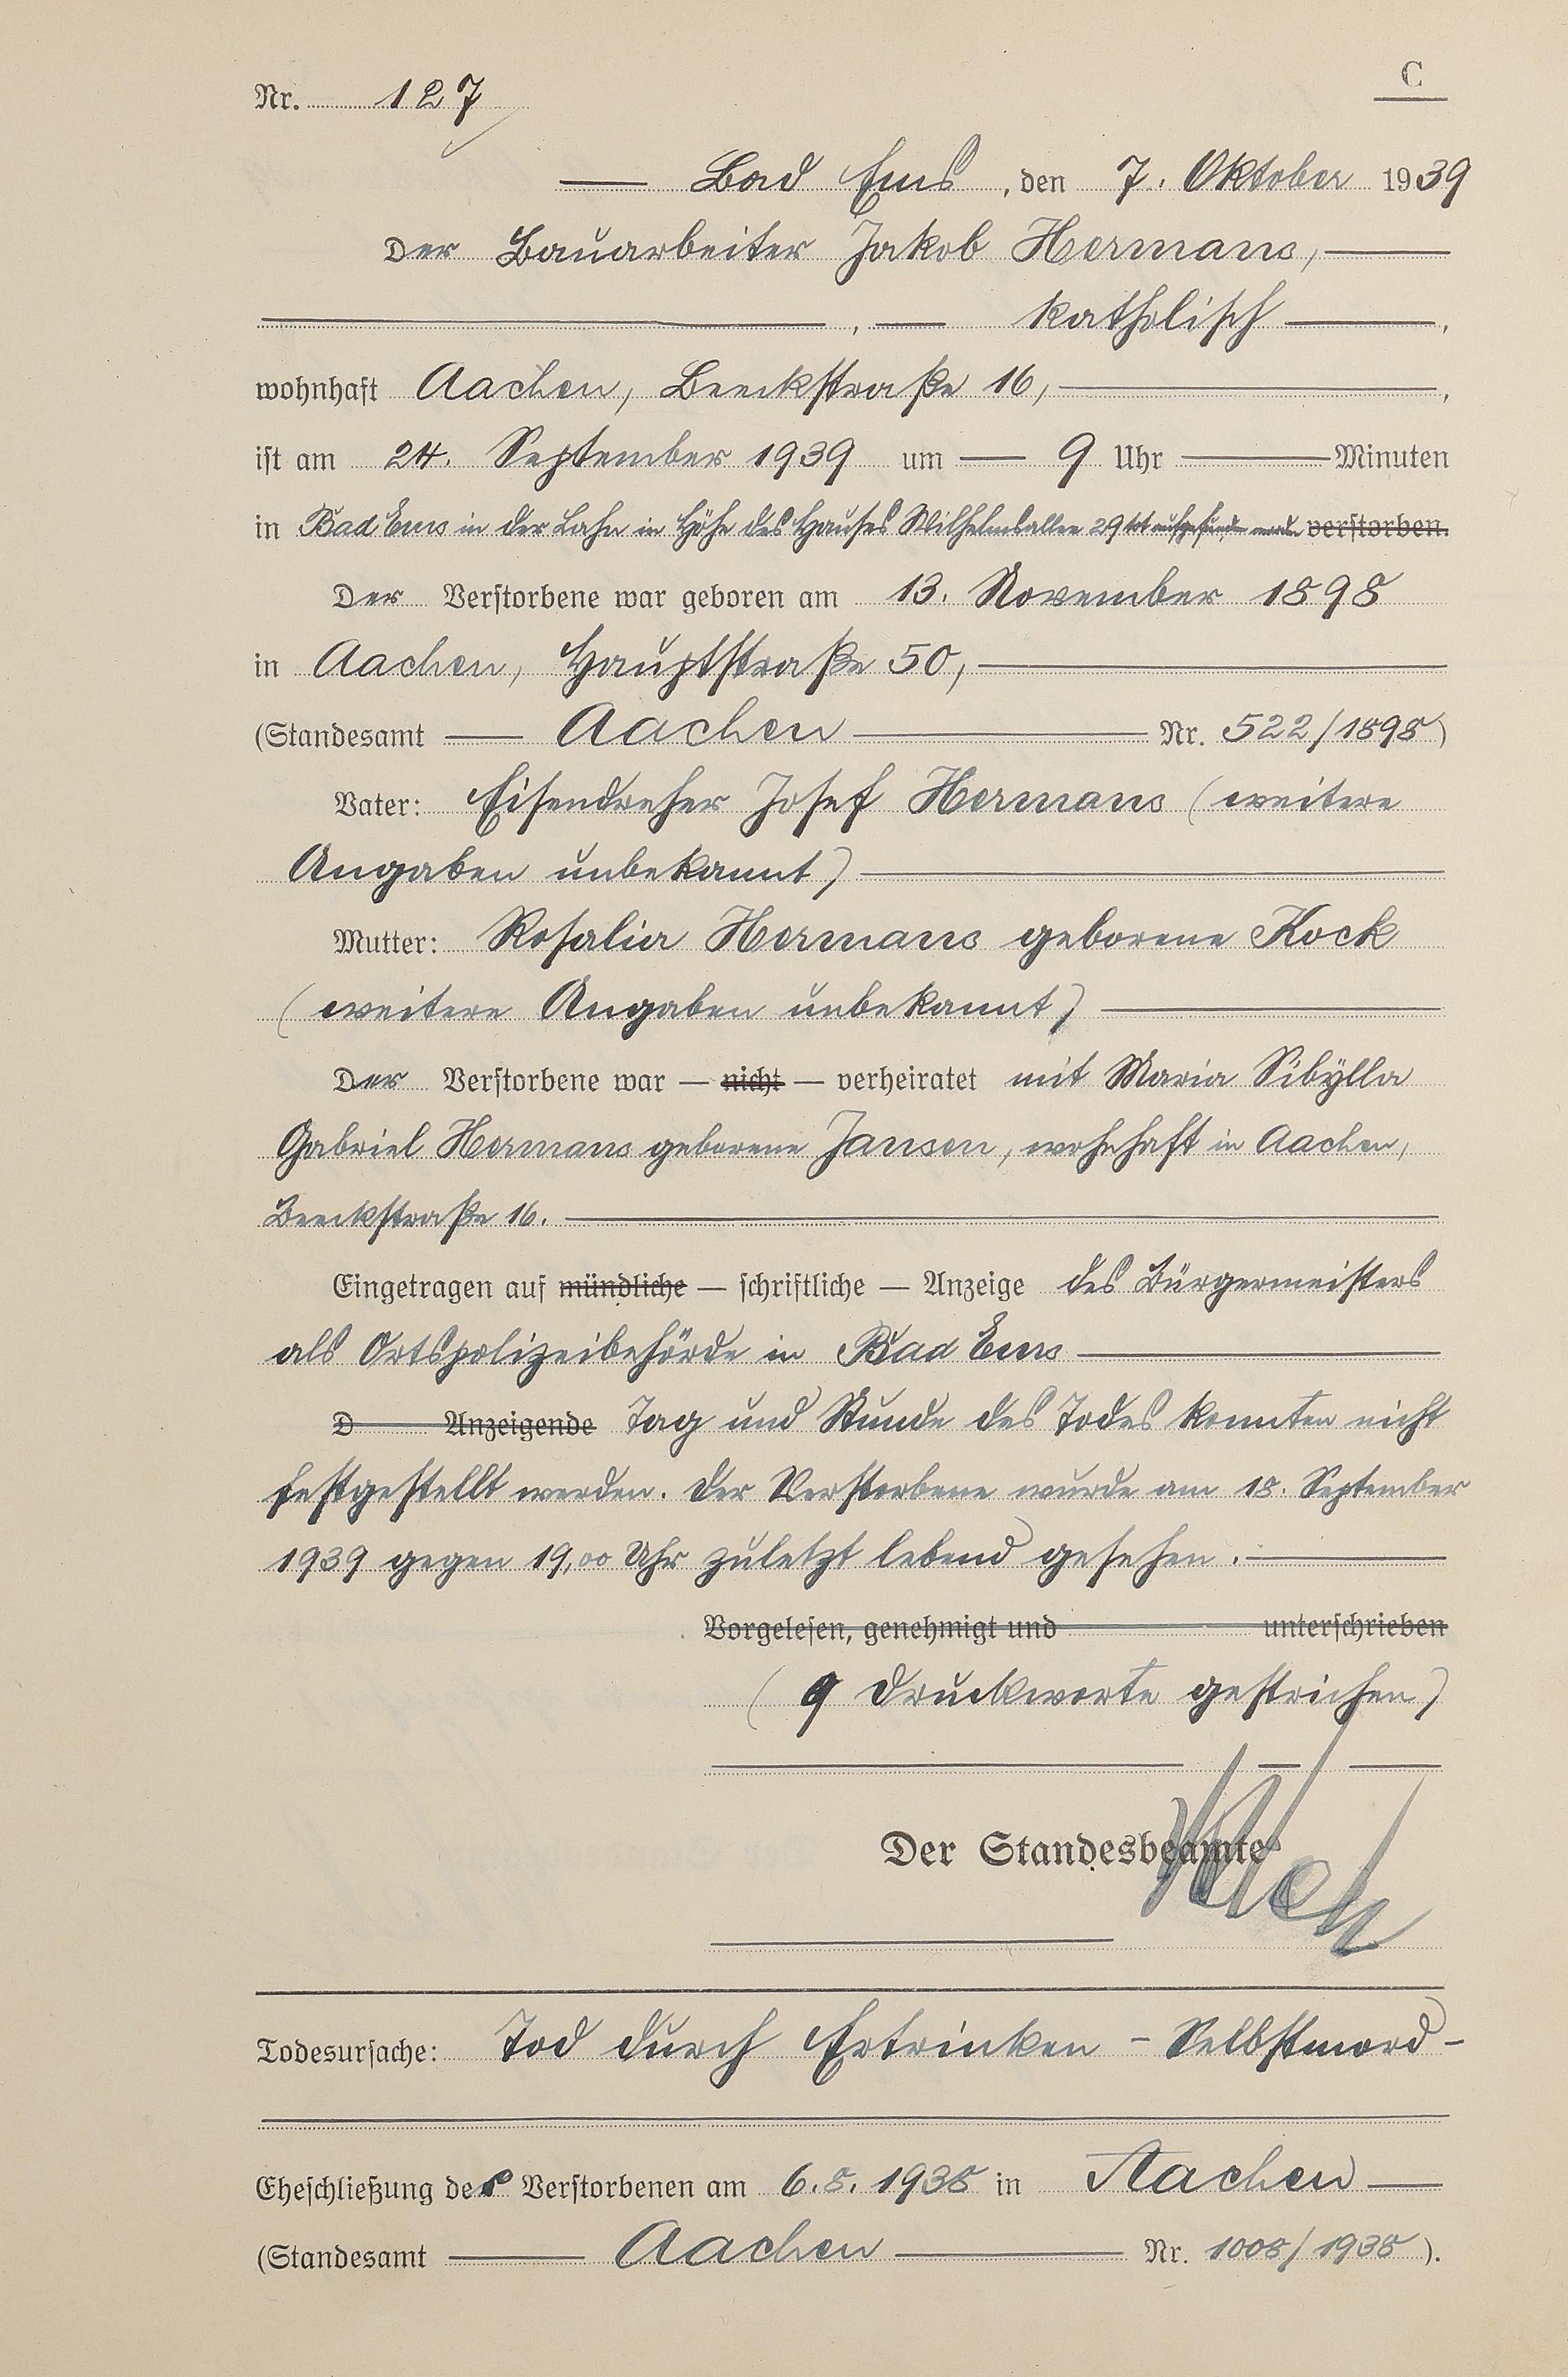 C
Nr. 127
Bad Ems, den 7. Oktober 1939
Der Bauarbeiter Jakob Hermans,
, katholisch,
wohnhaft Aachen, Beeckstraße 16,
ist am 24. September 1939 um 9 Uhr Minuten
in Bad Ems in der Lahn in Höhe des Hauses Wilhelmsallee 29 tot aufgefunden worden verstorben.
Der Verstorbene war geboren am 13. November 1898
in Aachen, Hauptstraße 50,
(Standesamt Aachen Nr. 522/1898)
Vater: Eisendreher Josef Hermans (weitere
Angaben unbekannt)
Mutter: Rosalia Hermans geborene Kock
(weitere Angaben unbekannt)
Der Verstorbene war — nicht — verheiratet mit Maria Sibÿlla
Gabriel Hermans geborene Jansen, wohnhaft in Aachen,
Beeckstraße 16.
Eingetragen auf mündliche — schriftliche — Anzeige des Bürgermeisters
als Ortspolizeibehörde in Bad Ems
D Anzeigende Tag und Stunde des Todes konnten nicht
festgestellt werden. Der Verstorbene wurde am 18. September
1939 gegen 19,00 Uhr zuletzt lebend gesehen.
Vorgelesen, genehmigt und unterschrieben
(9 Druckworte gestrichen)
Der Standesbeamte
Todesursache: Tod durch Ertrinken - Selbstmord -
Eheschließung des Verstorbenen am 6.8.1938 in Aachen
(Standesamt Aachen Nr. 1008/1938).